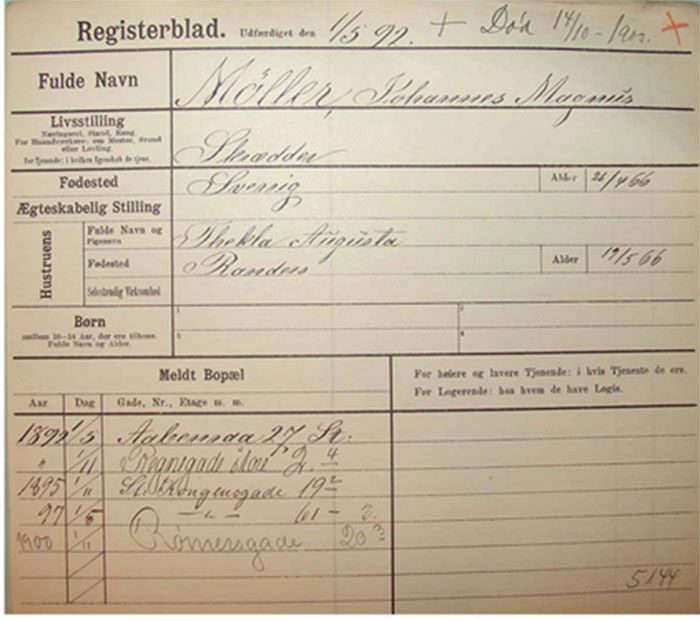 Registerblad. Udfærdiget den 1/5 92. + Død 14/10 - 1900. +
Fulde Navn Möller, Johannes Magnus
Livsstilling
Næringsvei, Stand, Rang.
For Haandværkere: om Mester, Svend
eller Lærling.
For Tjenende: i hvilken Egenskab de tjene.
Skrædder
Fødested Sverrig Alder 26/4 66
Ægteskabelig Stilling
Hustruens
Fulde Navn og
Pigenavn
Thekla Augusta
Fødested Randers Alder 19/5 66
Selvstændig Virksomhed
Børn
mellem 10—14 Aar, der ere tilhuse.
Fulde Navn og Alder.
1 2
3 4
Meldt Bopæl
For høiere og lavere Tjenende: i hvis Tjeneste de ere.
For Logerende: hos hvem de have Logis.
Aar Dag Gade, Nr., Etage m. m.
1892 1/5 Aabenraa 27 St.
" 1/11 Regnegade 2. 4
1895 1/11 St. Kongensgade 19 2
97 1/5 - " - 61 -
1900 1/11 Rømersgade 20 3
5144